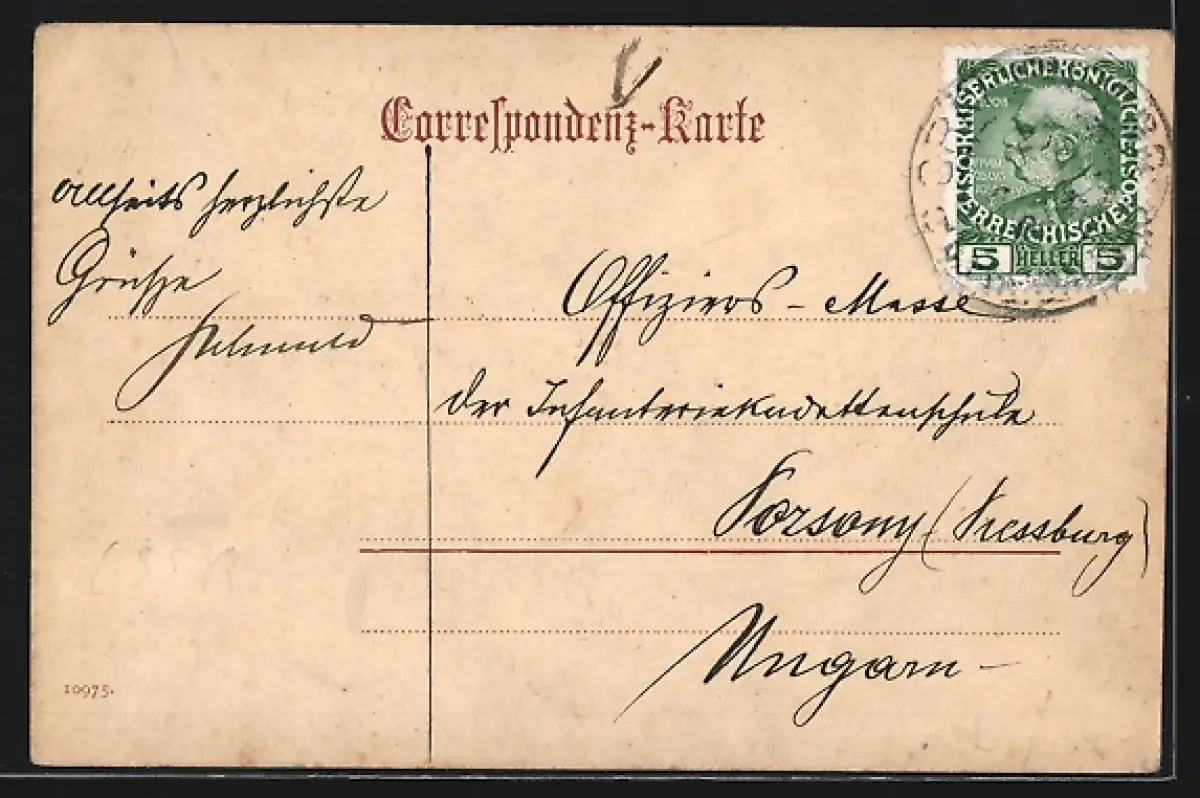 Correspondenz-Karte
Allseits herzlichste
Grüße
Offiziers - Messe
der Infanteriekadettenschule
Pozsony (Pressburg)
Ungarn -
KAISERLICHE KÖNIGLICHE ÖSTERREICHISCHE POST
5 HELLER 5
10975.